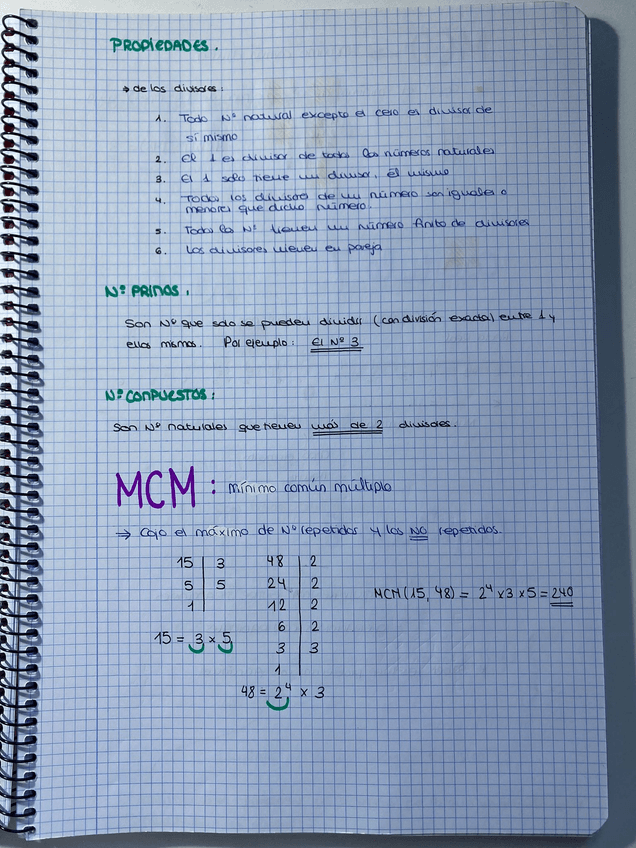 PROPIEDADES.
→ de los divisores:
1. Todo Nº natural excepto el cero es divisor de
sí mismo
2. El 1 es divisor de todos los números naturales
3. El 1 solo tiene un divisor, él mismo
4. Todos los divisores de un número son iguales o
menores que dicho número.
5. Todos los Nº tienen un número finito de divisores
6. Los divisores vienen en pareja
Nº PRIMOS.
Son Nº que solo se pueden dividir (con división exacta) entre 1 y
ellos mismos. Por ejemplo: El Nº 3
Nº COMPUESTOS:
Son Nº naturales que tienen más de 2 divisores.
MCM: mínimo común múltiplo
→ Cojo el máximo de Nº repetidos y los NO repetidos.
15 | 3
5 | 5
1 |
15 = 3 × 5
48 | 2
24 | 2
12 | 2
6 | 2
3 | 3
1 |
48 = 2⁴ × 3
MCM (15, 48) = 2⁴ × 3 × 5 = 240